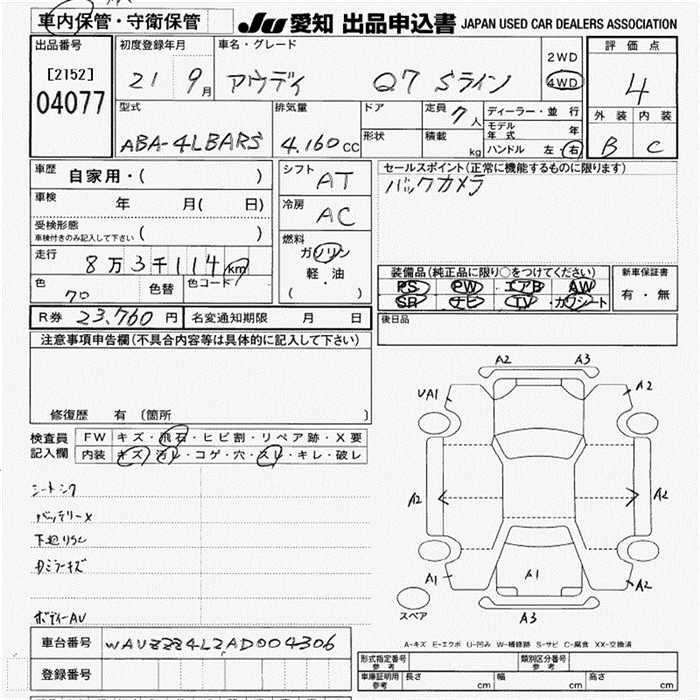 車内保管・守衛保管
JU 愛知 出品申込書 JAPAN USED CAR DEALERS ASSOCIATION
出品番号
[2152]
04077
初度登録年月
21 9月
車名・グレード
アウディ Q7 Sライン
2WD
4WD
評価点
4
外装 内装
B C
型式
ABA-4LBARS
排気量
4.160cc
ドア
形状
定員 7人
積載 kg
ディーラー・並行
モデル年式 年
ハンドル 左・右
車歴 自家用・( )
車検 年 月( 日)
受検形態
車検付きのみ記入して下さい ( )
走行 8万3千114km
色 色替 色コード
70
シフト AT
冷房 AC
燃料
ガソリン
軽・油
( )
セールスポイント(正常に機能するものに限ります)
バックカメラ
装備品(純正品に限り○をつけてください)
PS PW エアB AW
SR ナビ TV カワシート
新車保証書
有・無
後日品
R券 23,760円
名変通知期限 月 日
注意事項申告欄(不具合内容等は具体的に記入して下さい)
修復歴 有 〔箇所 〕
検査員記入欄
FW キズ・飛石・ヒビ割・リペア跡・X要
内装 キズ・汚レ・コゲ・穴・スレ・キレ・破レ
バッテリーX
下廻りSC
ボディーAU
A2 A3
UA1 A2
A2 A2
A1 A1 A2
A3
スペア
A-キズ E-エクボ U-凹み W-補修跡 S-サビ C-腐食 XX-交換済
車台番号 WAUZZZ4LZAD004306
登録番号
形式指定番号
参考
類別区分番号
参考
車庫証明用
参考
長さ cm 幅 cm 高さ cm